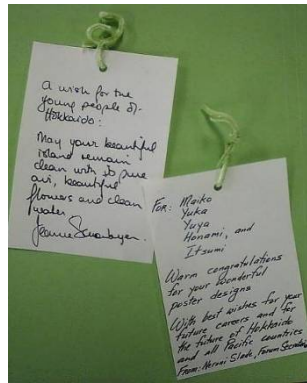 A wish for the
young people of
Hokkaido:
May your beautiful
island remain
clean with its pure
air, beautiful
flowers and clean
water
Jeanne
For: Maiko
Yuka
Yuya
Honami, and
Itsumi
Warm congratulations
for your wonderful
poster designs
With best wishes for your
future careers and for
the future of Hokkaido
and all Pacific countries
From: Slade, Forum